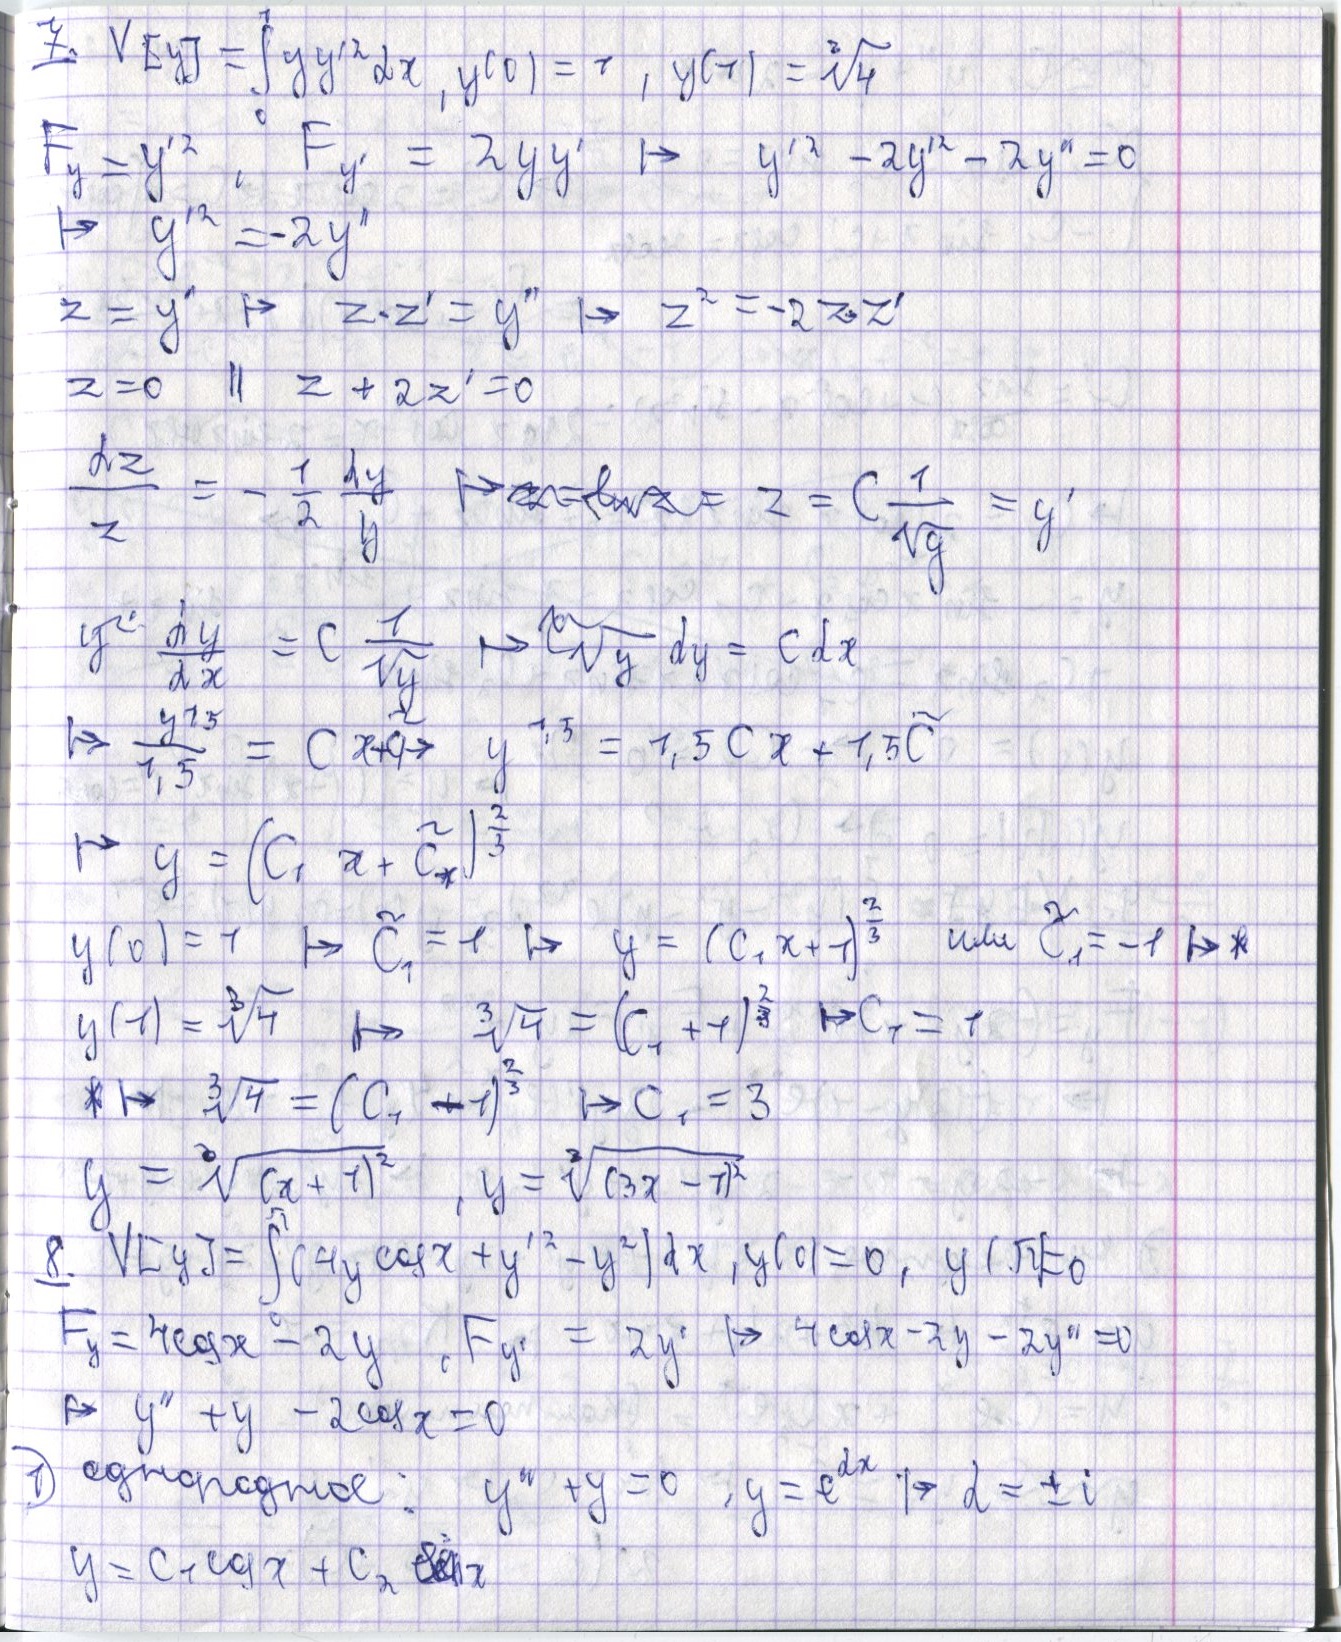 7. V[y] = ∫₀¹ yy'² dx, y(0) = 1, y(1) = ∛4
F_y = y'², F_y' = 2yy' ↦ y'² - 2y'² - 2y'' = 0
↦ y'² = -2y''
z = y' ↦ z·z' = y'' ↦ z² = -2z·z'
z = 0 || z + 2z' = 0
dz/z = -1/2 dy/y ↦ z = C 1/√y = y'
dy/dx = C 1/√y ↦ √y dy = C dx
↦ y^1,5/1,5 = Cx + C̃ ↦ y^1,5 = 1,5Cx + 1,5C̃
↦ y = (C₁ x + C̃₁)^(2/3)
y(0) = 1 ↦ C̃₁ = 1 ↦ y = (C₁x + 1)^(2/3) или C̃₁ = -1 ↦ *
y(1) = ∛4 ↦ ∛4 = (C₁ + 1)^(2/3) ↦ C₁ = 1
* ↦ ∛4 = (C₁ - 1)^(2/3) ↦ C₁ = 3
y = ∛(x + 1)², y = ∛(3x - 1)²
8. V[y] = ∫₀^π (4y cos x + y'² - y²) dx, y(0) = 0, y(π) = 0
F_y = 4cos x - 2y, F_y' = 2y' ↦ 4cos x - 2y - 2y'' = 0
↦ y'' + y - 2cos x = 0
1) однородное: y'' + y = 0, y = e^(λx) ↦ λ = ±i
y = C₁ cos x + C₂ sin x